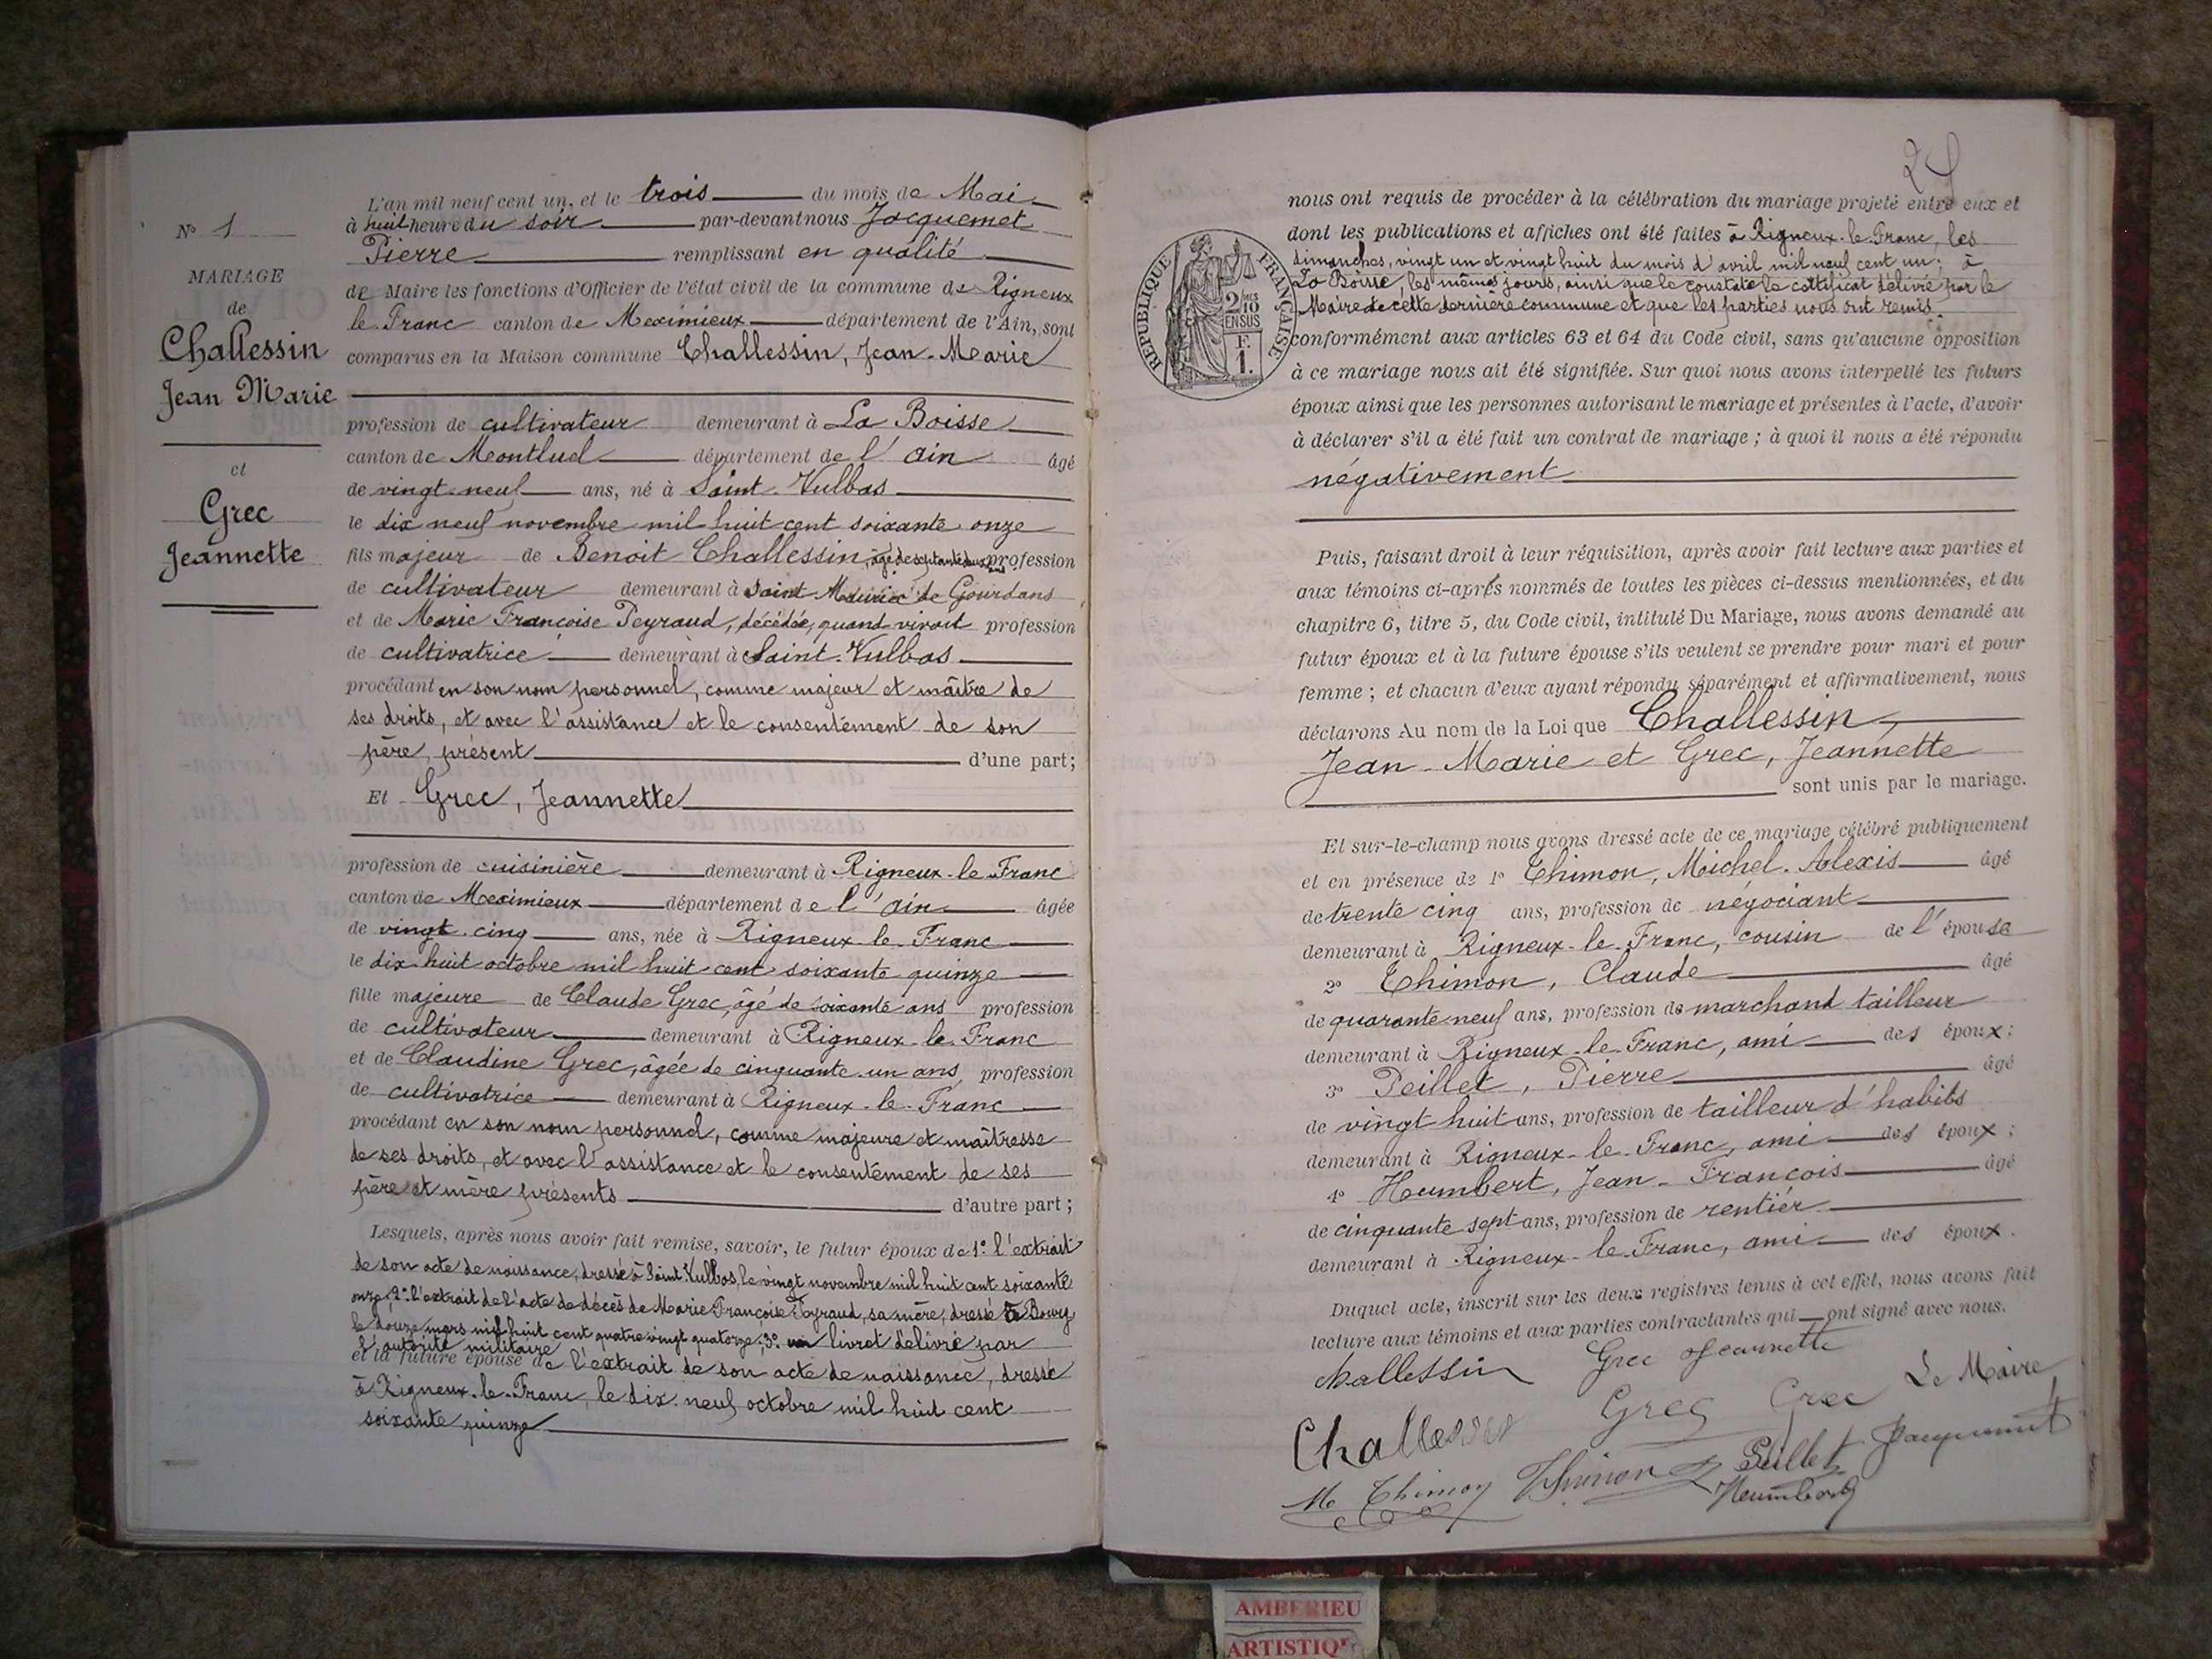 N° 1
MARIAGE
de
Challessin
Jean Marie
et
Grec
Jeannette
L'an mil neuf cent un, et le trois du mois de Mai
à huit heure du soir par-devant nous Jacquemet
Pierre remplissant en qualité
de Maire les fonctions d'Officier de l'état civil de la commune de Rigneux
le Franc canton de Meximieux département de l'Ain, sont
comparus en la Maison commune Challessin, Jean-Marie
profession de cultivateur demeurant à La Boisse
canton de Montluel département de l'ain âgé
de vingt-neuf ans, né à Saint-Vulbas
le dix neuf novembre mil huit cent soixante onze
fils majeur de Benoit Challessin, âgé de septante deux ans profession
de cultivateur demeurant à Saint Maurice de Gourdans
et de Marie Françoise Peyraud, décédée, quand vivait profession
de cultivatrice demeurant à Saint-Vulbas
procédant en son nom personnel, comme majeur et maître de
ses droits, et avec l'assistance et le consentement de son
père, présent d'une part;
Et Grec, Jeannette
profession de cuisinière demeurant à Rigneux-le-Franc
canton de Meximieux département de l'ain âgée
de vingt-cinq ans, née à Rigneux-le-Franc
le dix-huit octobre mil huit cent soixante quinze
fille majeure de Claude Grec, âgé de soixante ans profession
de cultivateur demeurant à Rigneux-le-Franc
et de Claudine Grec, âgée de cinquante-un ans, profession
de cultivatrice demeurant à Rigneux-le-Franc
procédant en son nom personnel, comme majeure et maîtresse
de ses droits, et avec l'assistance et le consentement de ses
père et mère présents d'autre part;
Lesquels, après nous avoir fait remise, savoir, le futur époux de 1° l'extrait
de son acte de naissance, dressé à Saint Vulbas, le vingt novembre mil huit cent soixante
onze; 2° l'extrait de l'acte de décès de Marie Françoise Peyraud, sa mère, dressé à Bourg
le douze mars mil huit cent quatre vingt quatorze; 3° un livret délivré par
l'autorité militaire
et la future épouse de l'extrait de son acte de naissance, dressé
à Rigneux-le-Franc, le dix-neuf octobre mil huit cent
soixante quinze
nous ont requis de procéder à la célébration du mariage projeté entre eux et
dont les publications et affiches ont été faites à Rigneux-le-Franc, les
dimanches, vingt un et vingt huit du mois d'avril mil neuf cent un; à
La Boisse, les mêmes jours, ainsi que le constate le certificat délivré par le
Maire de cette dernière commune et que les parties nous ont remis.
RÉPUBLIQUE FRANÇAISE
2 MES 10
EN SUS
F.
1.
conformément aux articles 63 et 64 du Code civil, sans qu'aucune opposition
à ce mariage nous ait été signifiée. Sur quoi nous avons interpellé les futurs
époux ainsi que les personnes autorisant le mariage et présentes à l'acte, d'avoir
à déclarer s'il a été fait un contrat de mariage; à quoi il nous a été répondu
négativement
Puis, faisant droit à leur réquisition, après avoir fait lecture aux parties et
aux témoins ci-après nommés de toutes les pièces ci-dessus mentionnées, et du
chapitre 6, titre 5, du Code civil, intitulé Du Mariage, nous avons demandé au
futur époux et à la future épouse s'ils veulent se prendre pour mari et pour
femme; et chacun d'eux ayant répondu séparément et affirmativement, nous
déclarons Au nom de la Loi que Challessin,
Jean-Marie et Grec, Jeannette
sont unis par le mariage.
Et sur-le-champ nous avons dressé acte de ce mariage célébré publiquement
et en présence de 1° Thimon, Michel-Alexis âgé
de trente cinq ans, profession de négociant
demeurant à Rigneux-le-Franc, cousin de l'épouse
2° Thimon, Claude âgé
de quarante neuf ans, profession de marchand tailleur
demeurant à Rigneux-le-Franc, ami des époux;
3° Peillet, Pierre âgé
de vingt huit ans, profession de tailleur d'habits
demeurant à Rigneux-le-Franc, ami des époux;
4° Heumbert, Jean-François âgé
de cinquante sept ans, profession de rentier
demeurant à Rigneux-le-Franc, ami des époux.
Duquel acte, inscrit sur les deux registres tenus à cet effet, nous avons fait
lecture aux témoins et aux parties contractantes qui ont signé avec nous.
Challessin Grec Jeannette
Le Maire,
Challessin Grec Grec Jacquemet
M Thimon Thimon Peillet
Heumbert
AMBERIEU
ARTISTIQ